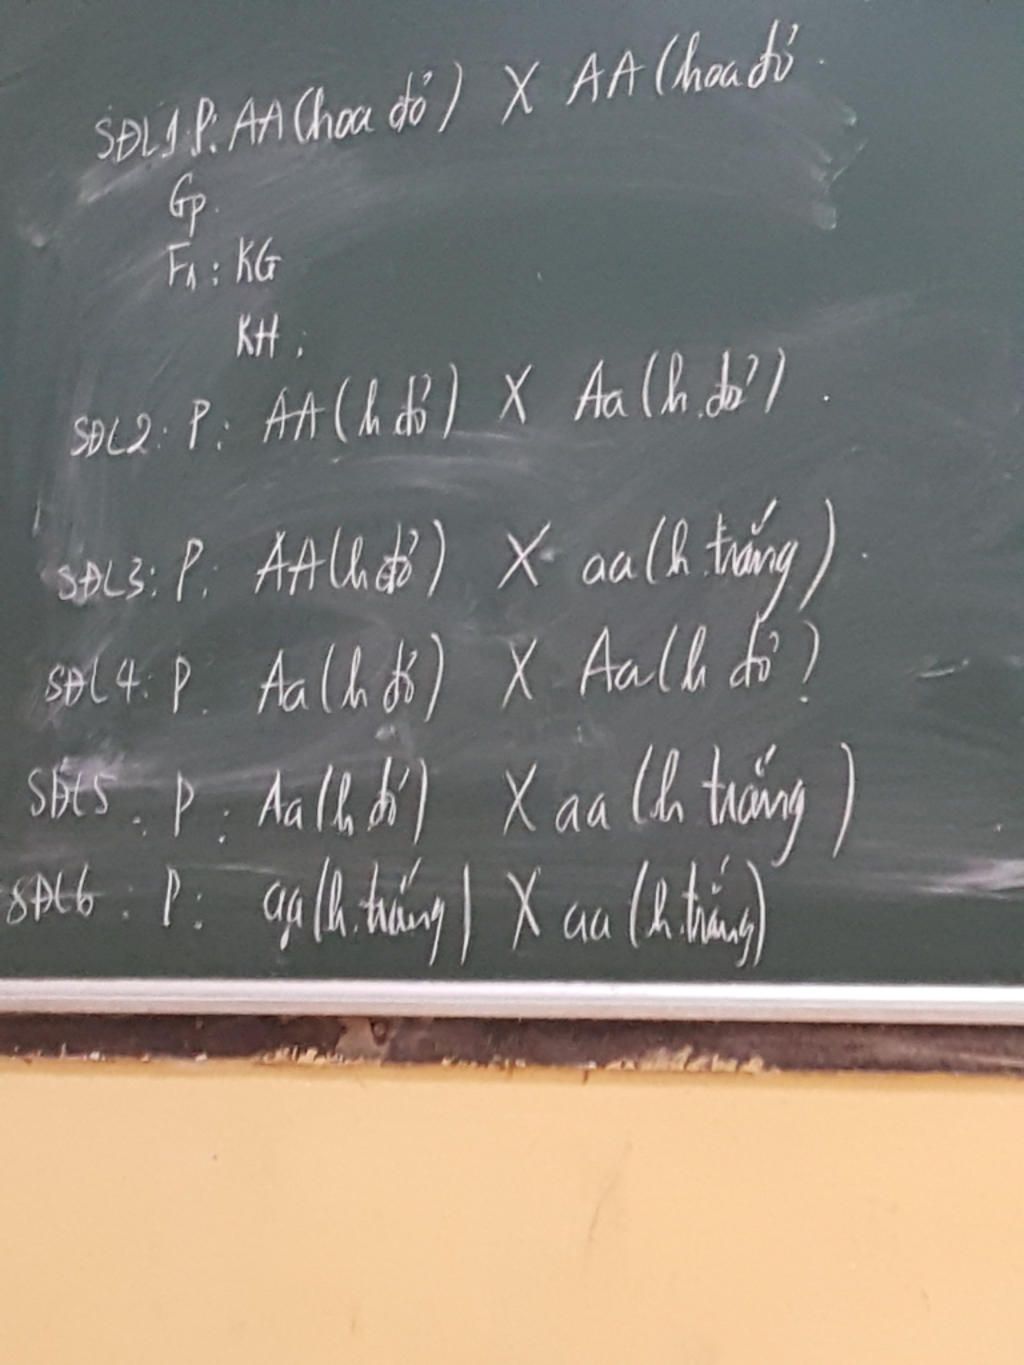 SĐL1 P: AA (hoa đỏ) X AA (hoa đỏ
Gp.
F1 : KG
KH :
SĐL2 : P : AA (h đỏ) X Aa (h. đỏ) .
SĐL3 : P : AA (h đỏ) X aa (h. trắng) .
SĐL4 : P . Aa (h đỏ) X Aa (h đỏ)
SĐL5 : P : Aa (h đỏ) X aa (h trắng)
SĐL6 : P : aa (h. trắng) X aa (h. trắng)